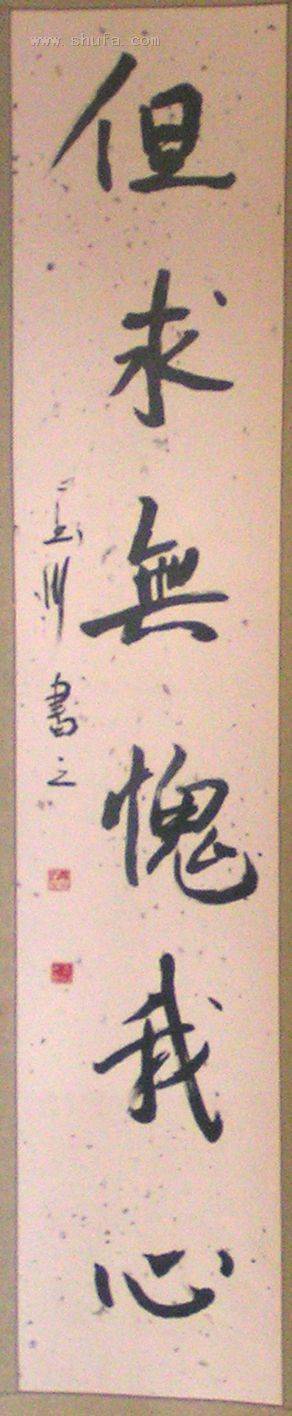 www.shufa.com
但求無愧我心
書之